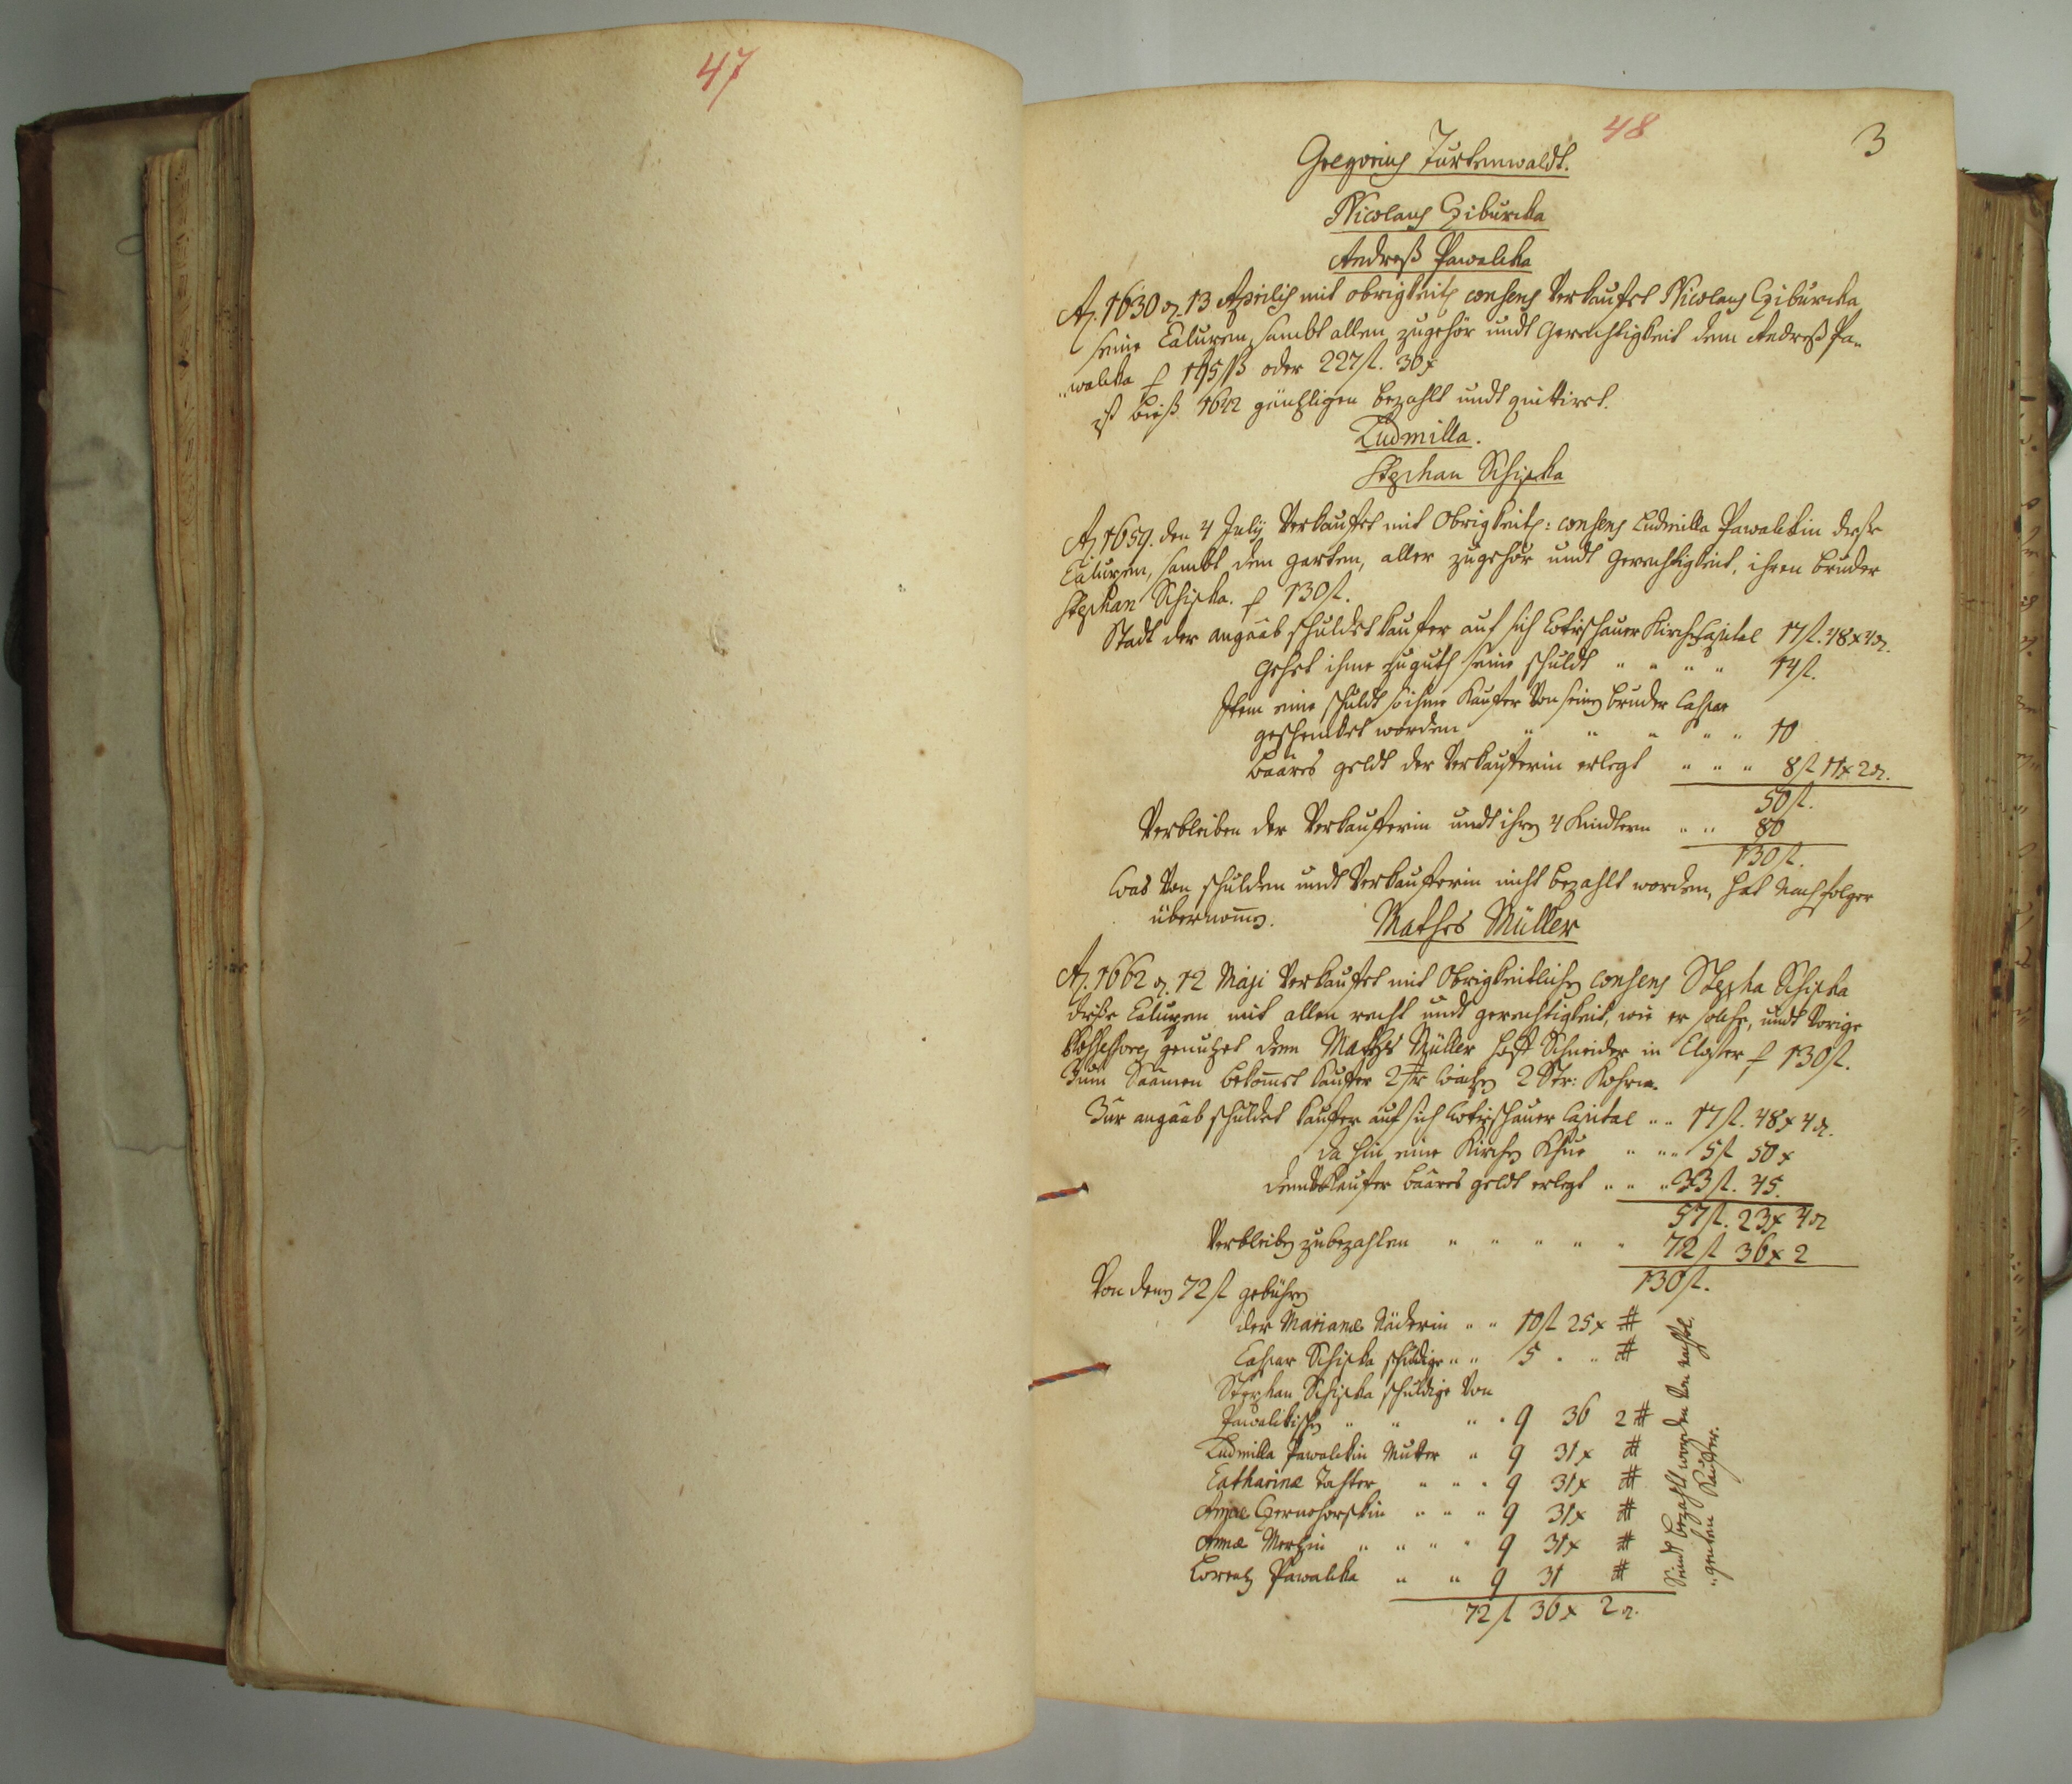 47
48
3
Gregorius Turtenwaldt.
Nicolaus Cziburcka
Andreß Pawalcka
Ao. 1630 d. 13 Aprilis mit obrigkeits consens Verkaufet Nicolaus Cziburcka
seine Caluxen, sambt allen zugehör undt Gerechtigkeit dem Andreß Pa-
walcka p 195 ßß oder 227 fl. 30 x
ist bieß 1622 gäntzligen bezahlt undt quittiret.
Ludmilla.
Stephan Schiska
Ao 1659. den 4 July Verkaufet mit Obrigkeits: consens Ludmilla Pawalckin diese
Caluxen, sambt dem garten, aller zugehör undt Gerechtigkeit, ihren bruder
Stephan Schiska. p 130 fl.
Stadt der angaab schuldet kaufer auf sich Capital 17 fl. 48 x 4 d.
Gehet ihme zuguth seine schuldt " " " " 14 fl.
Item eine schuldt so ihme Kaufer Von seinen bruder Caspar
geschencket worden " " " " " 10
baares geldt der Verkauferin erlegt " " " 8 fl 11 x 2 d.
50 fl.
Verbleiben der Verkaufferin undt ihren 4 Kindtern " " 80
130 fl.
Was Von schulden undt Verkaufferin nicht bezahlt worden, hat Nachfolger
übernomen.
Mathes Müller
Ao. 1662 d. 12 Maji Verkaufet mit Obrigkeitlichen consens Stepha Schiska
diese Caluxen mit allen recht undt gerechtigkeit, wie er solche, undt Vorige
Possessores genutzet dem Mathes Müller Hoff Schneider in Closter p 130 fl.
Zum Saamen bekomet kaufer 2 Waitzen 2 Str: Kohrn.
Zur angaab schuldet kaufer auf sich Capital " " 17 fl. 48 x 4 d.
da hin eine Kirchen Khue " " " 5 fl 50 x
Kaufer baares geldt erlegt " " " 33 fl. 45.
57 fl. 23 x 4 d
Verbleiben zubezahlen " " " " " 72 fl 36 x 2
130 fl.
Von denen 72 fl gebühren
der Mariana Näderin " " 10 fl 25 x #
Caspar Schiska schuldige " " 5 " " #
Stephan Schiska schuldige Von
Pawalckischen " " " " 9 36 2 #
Ludmilla Pawalckin Mutter " 9 31 x #
Catharina Tochter " " " 9 31 x #
Czernohorskin " " " 9 31 x #
Anna " " " " 9 31 x #
Lorentz Pawalcka " " 9 31 #
72 fl 36 x 2 d.
Seindt bezahlt worden Von nachfol-
genten Kaufer.